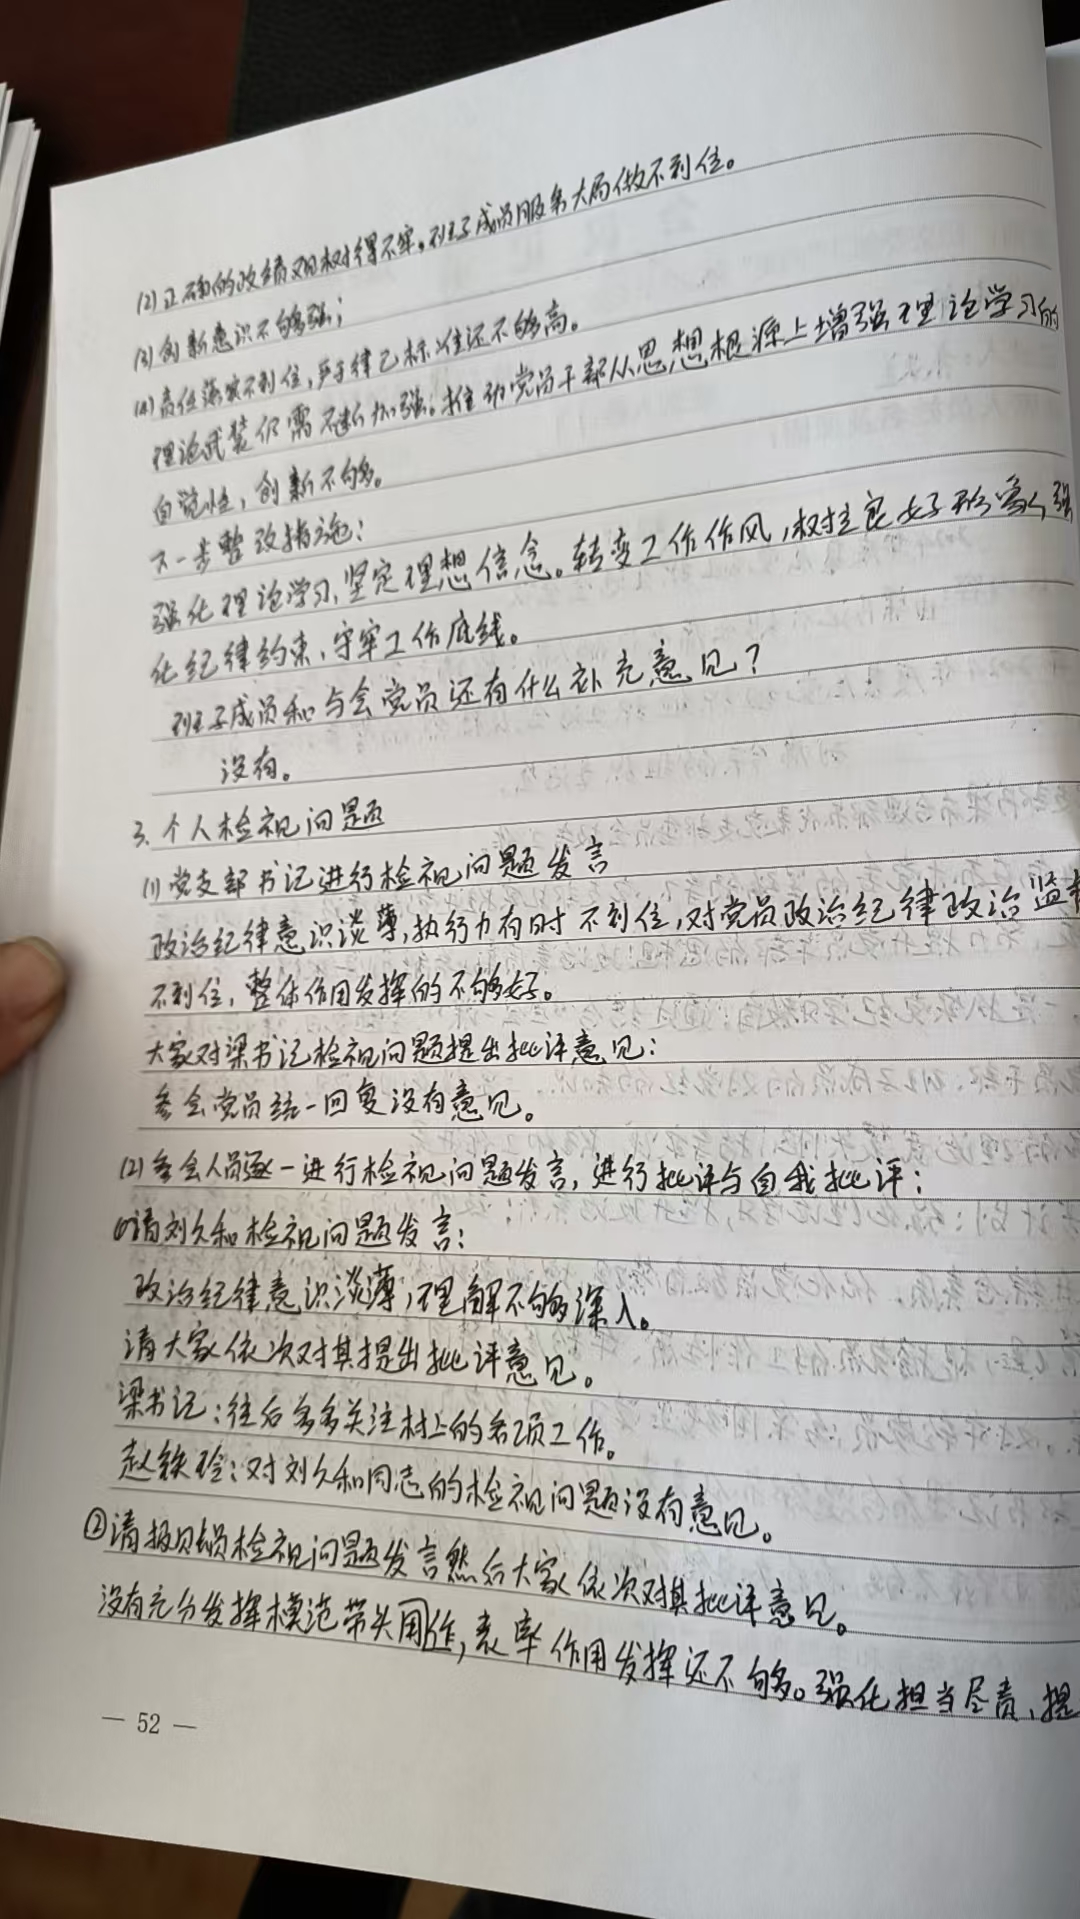 (2)正确的政绩观树得不牢。班子成员服务大局做不到位。
(3)创新意识不够强；
(4)责任落实不到位，严于律己标准还不够高。
理论武装仍需不断加强。推动党员干部从思想根源上增强理论学习的
自觉性，创新不够。
下一步整改措施：
强化理论学习、坚定理想信念。转变工作作风，树立良好形象，强
化纪律约束、守牢工作底线。
班子成员和与会党员还有什么补充意见？
没有。
3、个人检视问题
(1)党支部书记进行检视问题发言
政治纪律意识淡薄，执行力有时不到位，对党员政治纪律政治监
不到位，整体作用发挥的不够好。
大家对梁书记检视问题提出批评意见：
参会党员统一回复没有意见。
(2)参会人员逐一进行检视问题发言，进行批评与自我批评：
①请刘久和检视问题发言：
政治纪律意识淡薄，理解不够深入。
请大家依次对其提出批评意见。
梁书记：往后多多关注村上的各项工作。
赵铁玲：对刘久和同志的检视问题没有意见。
②请检视问题发言然后大家依次对其批评意见。
没有充分发挥模范带头用作，表率作用发挥还不够。强化担当尽责、提
— 52 —